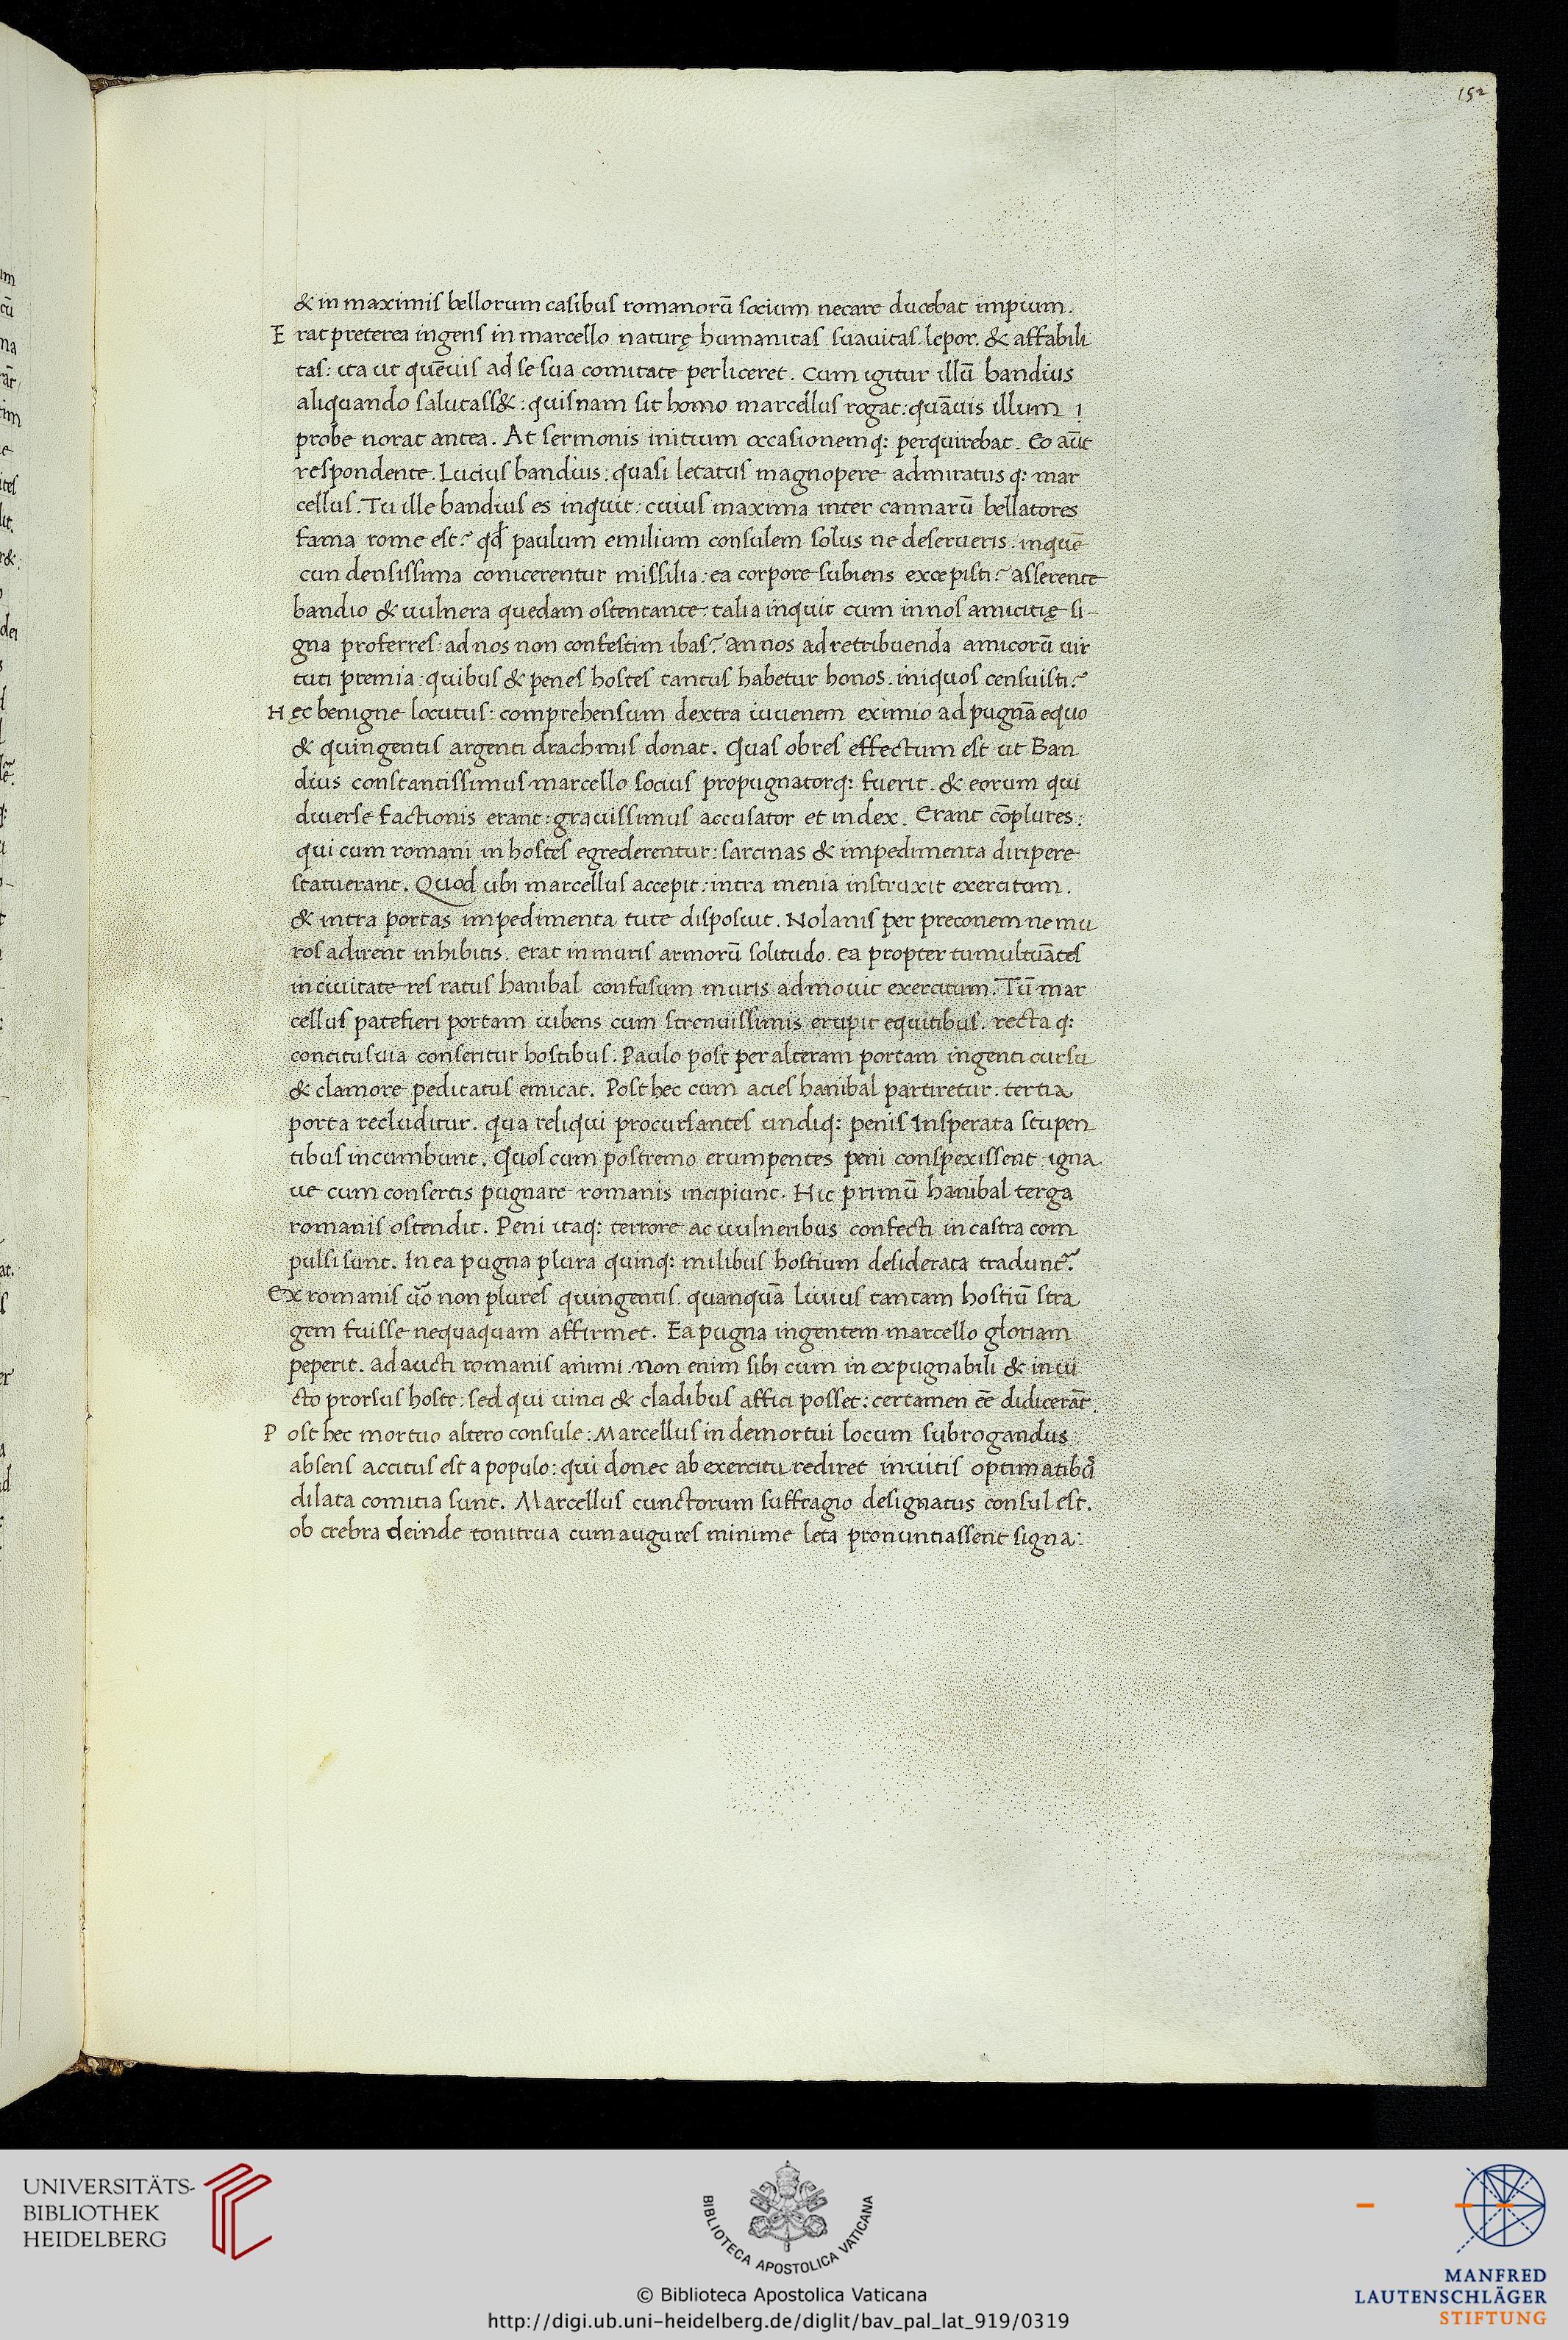 152
& in maximis bellorum casibus romanorū socium necare ducebat impium.
Erat preterea ingens in marcello naturę humanitas suavitas. lepor. & affabili
tas: ita ut quēvis ad se sua comitate perliceret. Cum igitur illū bandius
aliquando salutass&: quisnam sit homo marcellus rogat: quāvis illum i
probe norat antea. At sermonis initium occasionemq: perquirebat. Eo aūt
respondente. Lucius bandius: quasi letatus magnopere admiratusq: mar
cellus. Tu ille bandius es inquit: cuius maxima inter cannarū bellatores
fama rome est? qđ paulum emilium consulem solus ne deserueris. inquē
cun densissima conicerentur missilia: ea corpore subiens excepisti? asserente
bandio & vulnera quedam ostentante: talia inquit cum in nos amicitię si-
gna proferres: ad nos non confestim ibas? an nos ad retribuenda amicorū vir
tuti premia: quibus & penes hostes tantus habetur honos. iniquos censuisti?
Hęc benigne locutus: comprehensum dextra iuvenem eximio ad pugnā equo
& quingentis argenti drachmis donat. Quas ob res effectum est ut Ban
dius constantissimus marcello socius propugnatorq: fuerit. & eorum qui
diverse factionis erant: gravissimus accusator et index. Erant cōplures:
qui cum romani in hostes egrederentur: sarcinas & impedimenta diripere
statuerant. Quod ubi marcellus accepit: intra menia instruxit exercitum.
& intra portas impedimenta tute disposuit. Nolanis per preconem ne mu
ros adirent inhibitis. erat in muris armorū solitudo. ea propter tumultuātes
in civitate res ratus hanibal confusum muris admovit exercitum. Tū mar
cellus patefieri portam iubens cum strenuissimis erupit equitibus. rectaq:
concitus via conseritur hostibus. Paulo post per alteram portam ingenti cursu
& clamore peditatus emicat. Post hec cum acies hanibal partiretur. tertia
porta recluditur. qua reliqui procursantes undiq: penis Insperata stupen
tibus incumbunt. Quos cum postremo erumpentes peni conspexissent igna
ve cum consertis pugnare romanis incipiunt. Hic primū hanibal terga
romanis ostendit. Peni itaq: terrore ac vulneribus confecti in castra com
pulsi sunt. In ea pugna plura quinq: milibus hostium desiderata tradunt᷑.
Ex romanis ūo non plures quingentis. quanquā Livius tantam hostiū stra
gem fuisse nequaquam affirmet. Ea pugna ingentem marcello gloriam
peperit. adaucti romanis animi. non enim sibi cum inexpugnabili & invi
cto prorsus hoste: sed qui vinci & cladibus affici posset: certamen eē didicerāt.
Post hec mortuo altero consule: Marcellus in demortui locum subrogandus
absens accitus est a populo: qui donec ab exercitu rediret invitis optimatibꝰ
dilata comitia sunt. Marcellus cunctorum suffragio designatus consul est.
ob crebra deinde tonitrua cum augures minime leta pronuntiassent signa:
UNIVERSITÄTS-
BIBLIOTHEK
HEIDELBERG
BIBLIOTECA APOSTOLICA VATICANA
© Biblioteca Apostolica Vaticana
http://digi.ub.uni-heidelberg.de/diglit/bav_pal_lat_919/0319
MANFRED
LAUTENSCHLÄGER
STIFTUNG